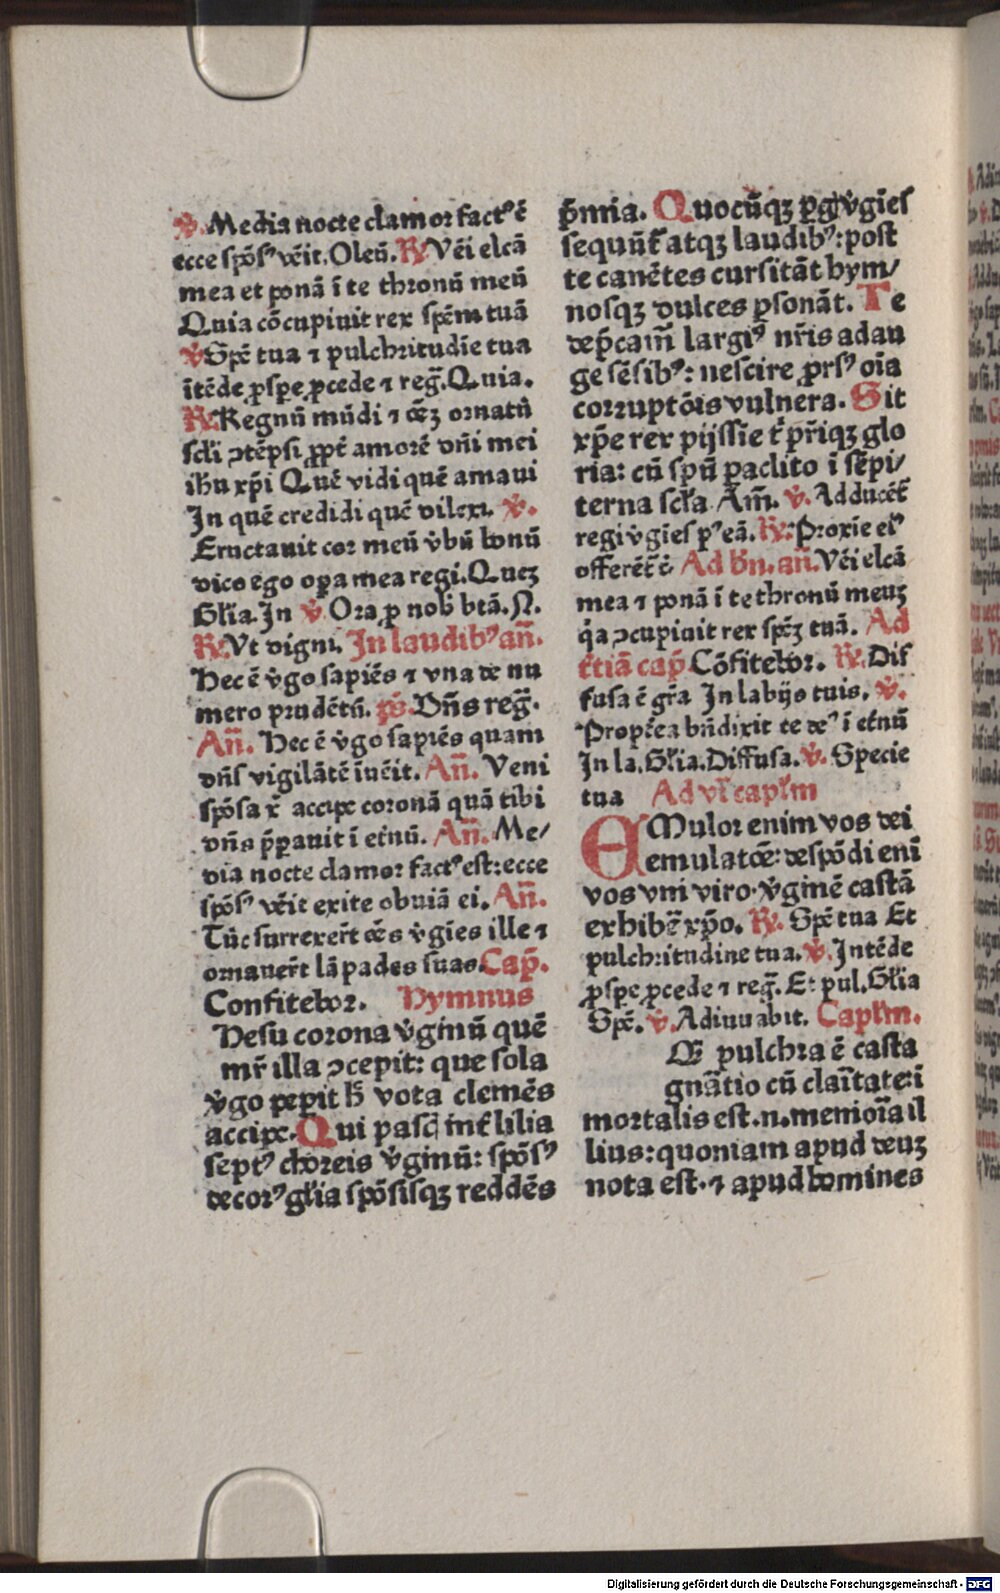 ℣. Media nocte clamor factꝰ ē
ecce spōsꝰ vēit. Oleū. ℟ Vēi elcā
mea et ponā ī te thronū meū
Quia cōcupiuit rex spēm tuā
℣ Spē tua ⁊ pulchritudīe tua
ītēde ꝓspe ꝓcede ⁊ reg̅. Quia.
℟ Regnū mūdi ⁊ oēꝫ ornatū
scłi ꝯtēpsi ꝓpt̄ amorē dn̄i mei
ihu xp̄i Quē vidi quē amaui
In quē credidi quē dilexi. ℣.
Eructauit cor meū v̄bū bonū
dico ego oꝑa mea regi. Queꝫ
Głia. In ℣ Ora ꝓ nob̄ btā. N.
℟ Vt digni. In laudibꝰ an̄.
Hec ē v̄go sapiēs ⁊ vna de nu
mero prudētū. ps̄. Dn̄s reg̅.
An̄. Hec ē v̄go sapiēs quam
dn̄s vigilātē īuēit. An̄. Veni
spōsa xr̄ accipe coronā quā tibi
dn̄s p̄parauit ī et̄nū. An̄. Me/
dia nocte clamor factꝰ est: ecce
spōsꝰ vēit exite obuiā ei. An̄.
Tūc surrexer̄t oēs v̄gies ille ⁊
ornauer̄t lāpades suas. Cap̄.
Confitebor. Hymnus
Hesu corona v̄ginū quē
mr̄ illa ꝯcepit: que sola
v̄go peperit h̄ vota clemēs
accipe. Qui pascꝭ int̄ lilia
septꝰ choreis v̄ginū: spōsꝰ
decorꝰ głia spōsisqꝫ reddēs
p̄mia. Quocūqꝫ ꝑgꝭ v̄gies
sequūt̄ atqꝫ laudibꝰ: post
te canētes cursitāt hym/
nosqꝫ dulces ꝑsonāt. Te
dep̄cam̄ largiꝰ nr̄is adau
ge sēsibꝰ: nescire ꝓrsꝰ oīa
corruptōis vulnera. Sit
xp̄e rex pijssie t̄ pr̄iqꝫ glo
ria: cū spū paclito ī sēpi/
terna scła. Am̄. ℣. Adducēt̄
regi v̄gies pꝰ eā. ℟. Proxīe eiꝰ
offerēt̄ t̄. Ad b̄n. an̄. Vēi elcā
mea ⁊ ponā ī te thronū meuꝫ
q̄a ꝯcupiuit rex spēꝫ tuā. Ad
t̄tiā cap̄ Cōfitebor. ℟. Dif
fusa ē gr̄a In labijs tuis. ℣.
Propt̄ea bn̄dixit te deꝰ ī et̄nū
In la. Głia. Diffusa. ℣. Specie
tua Ad vi̅ capłm
EMulor enim vos dei
emulatōe: despōdi enī
vos vni viro v̄ginē castā
exhibēe xp̄o. ℟. Spē tua Et
pulchritudine tua. ℣. Intēde
ꝓspe ꝓcede ⁊ reg̅. Et pul. Głia
Spē. ℣. Adiuuabit. Capłm.
O̅ꝫ pulchra ē casta
gnātio cū claītate: ī
mortalis est. n. memoīa il
lius: quoniam apud deuꝫ
nota est. ⁊ apud homines
Digitalisierung gefördert durch die Deutsche Forschungsgemeinschaft - DFG